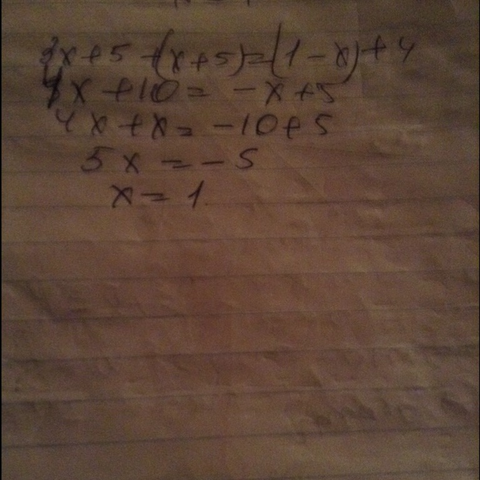 3x+5+(x+5)=(1-x)+4
4x+10=-x+5
4x+x=-10+5
5x=-5
x=1